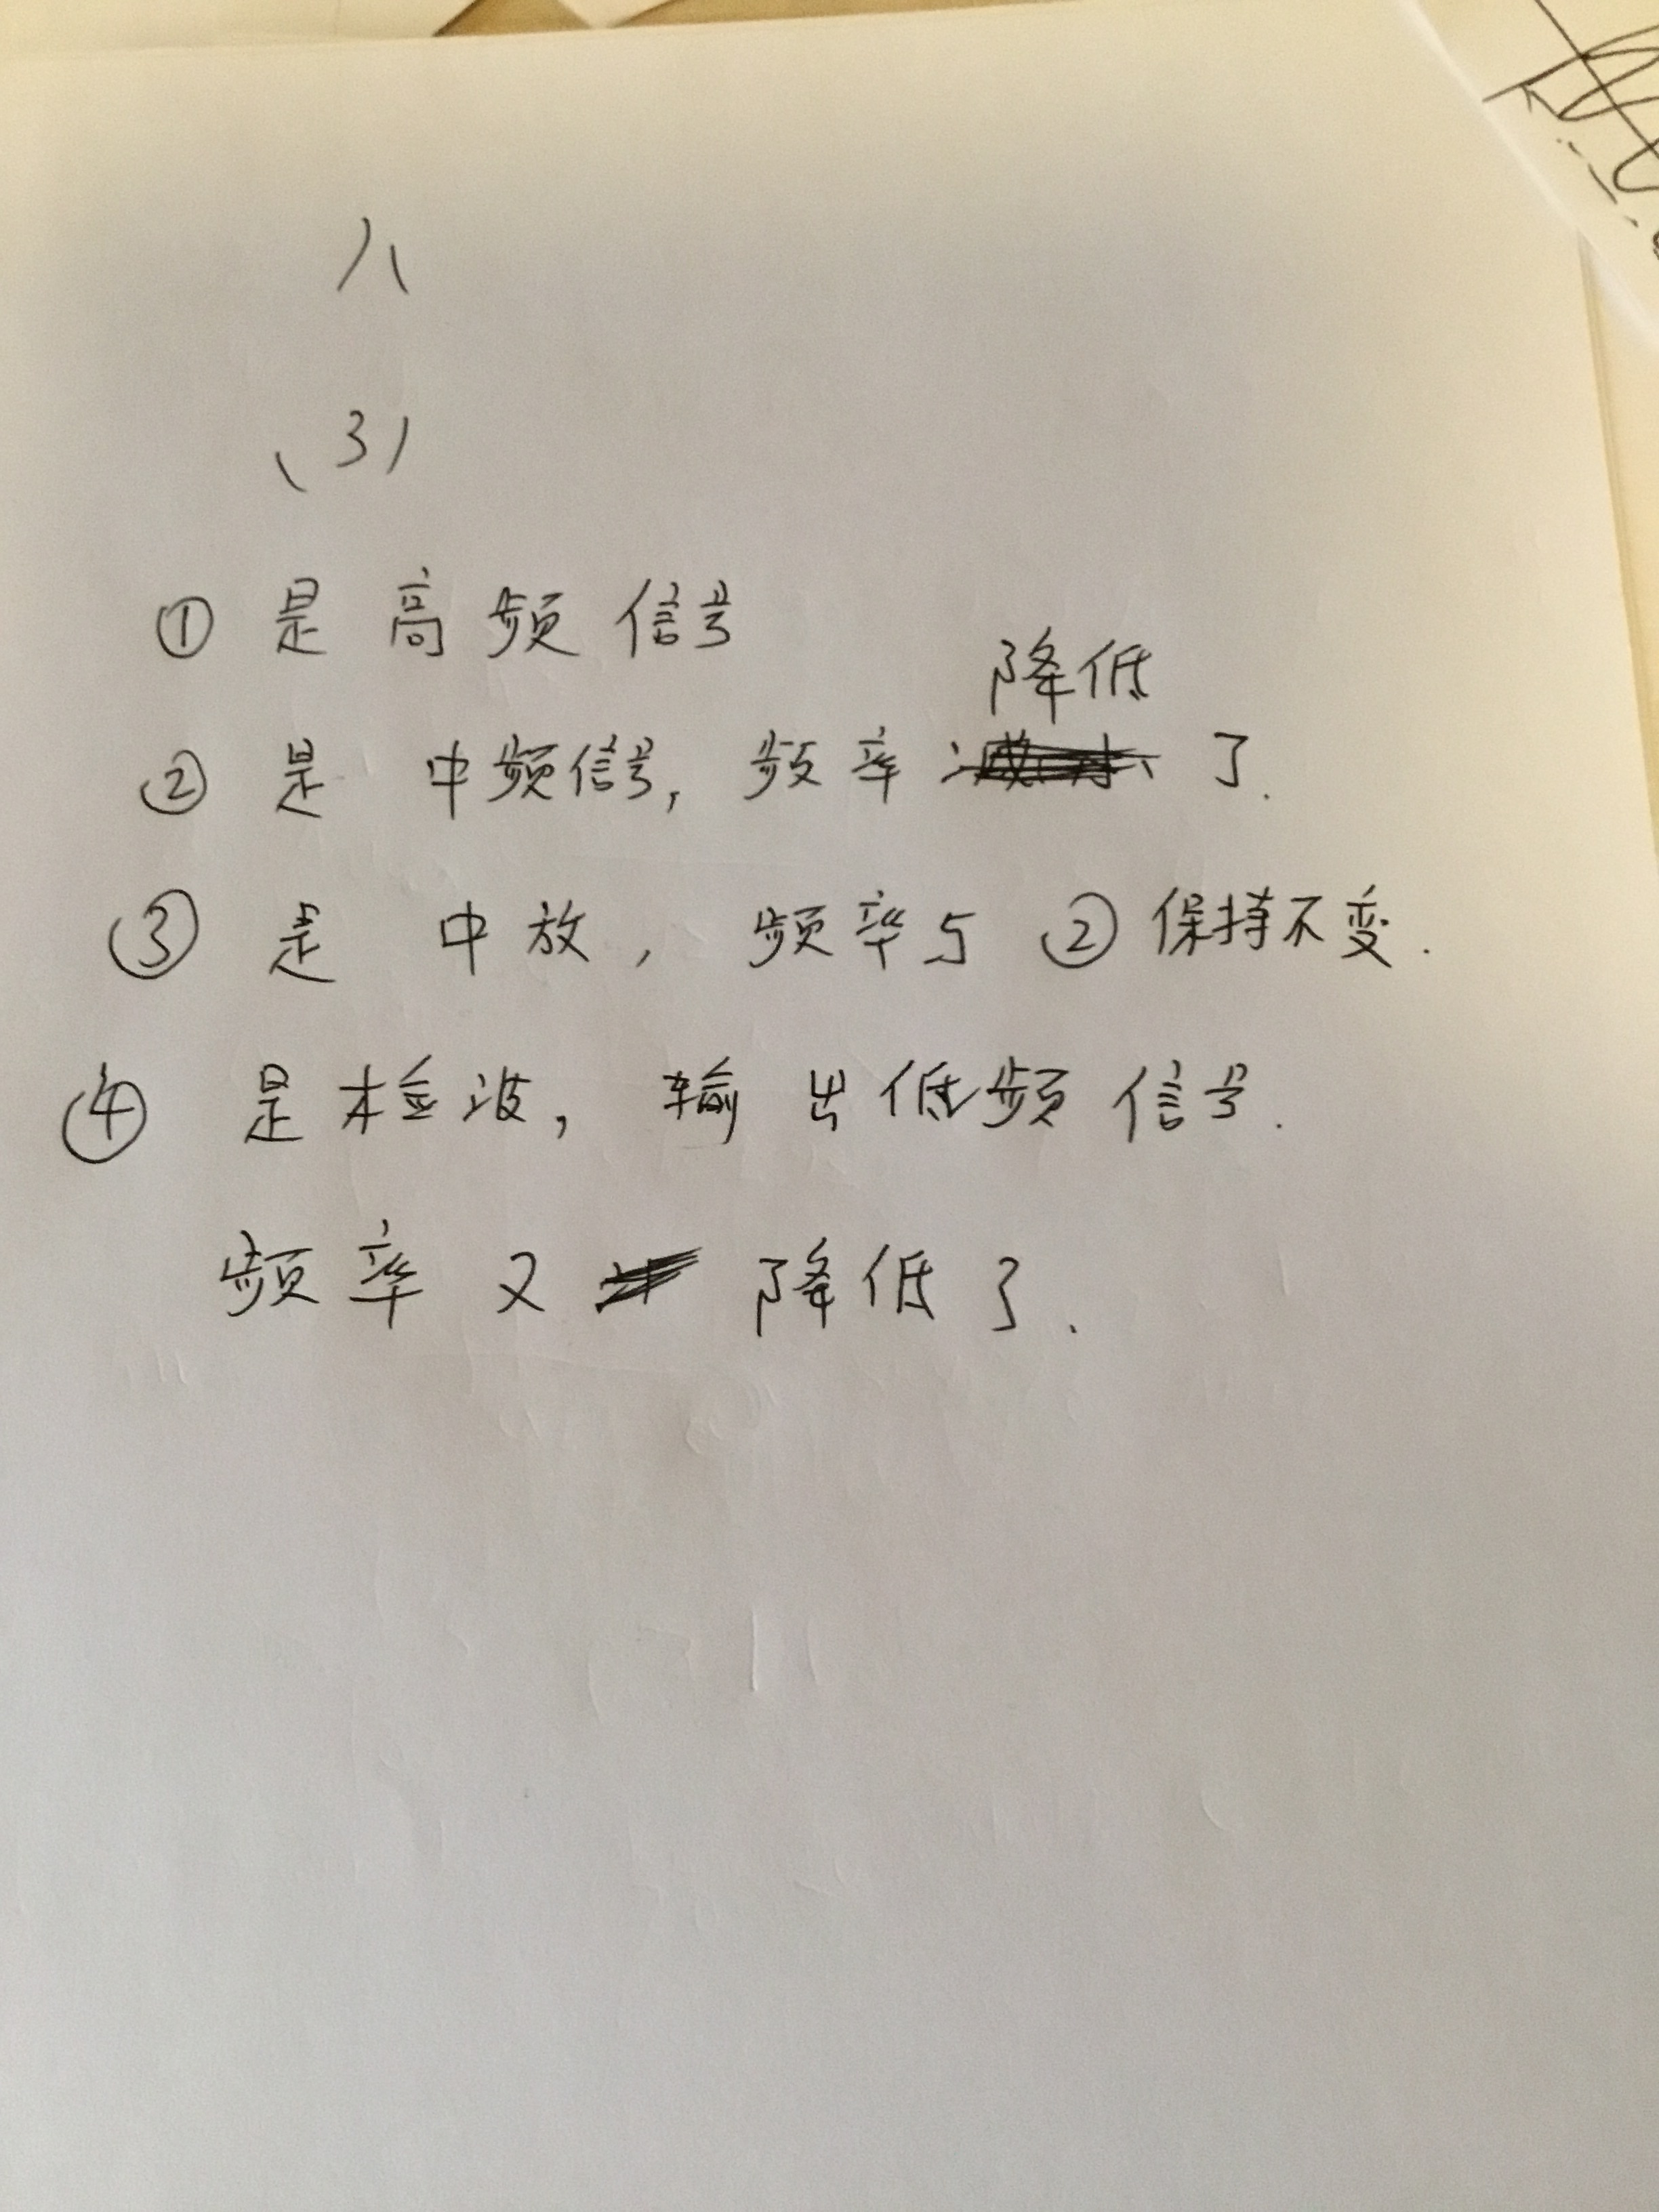 八
(3)
① 是高频信号
降低
② 是 中频信号, 频率 了.
③ 是 中放, 频率与 ② 保持不变.
④ 是检波, 输出低频信号.
频率又 降低了.